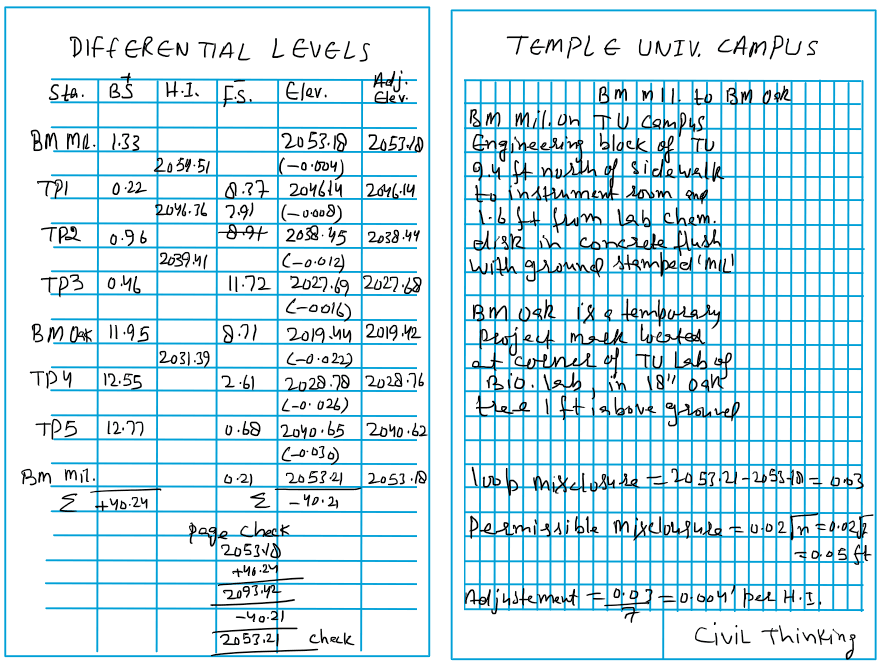 DIFFERENTIAL LEVELS
Sta. +BS H.I. -F.S. Elev. Adj. Elev.
BM Mil. 1.33 2053.18 2053.18
2054.51 (-0.004)
TP1 0.22 8.37 2046.14 2046.14
2046.36 7.91 (-0.008)
TP2 0.96 8.91 2038.45 2038.44
2039.41 (-0.012)
TP3 0.46 11.72 2027.69 2027.68
(-0.016)
BM Oak 11.95 8.71 2019.44 2019.42
2031.39 (-0.022)
TP4 12.55 2.61 2028.78 2028.76
(-0.026)
TP5 12.77 0.68 2040.65 2040.62
(-0.030)
Bm mil. 0.21 2053.21 2053.18
Σ +40.24 Σ -40.21
page check
2053.18
+40.24
2093.42
-40.21
2053.21 check
TEMPLE UNIV. CAMPUS
BM mil. to BM Oak
BM Mil. on TU Campus
Engineering block of TU
9.4 ft north of sidewalk
to instrument room and
1.6 ft from lab chem.
disk in concrete flush
with ground stamped 'MIL'
BM Oak is a temporary
project mark located
at corner of TU Lab of
Bio. lab, in 18" oak
tree 1 ft above ground
loop misclosure = 2053.21-2053.18 = 0.03
Permissible misclousure = 0.02√n = 0.02√7
= 0.05 ft
Adjustement = 0.03/7 = 0.004' per H.I.
Civil Thinking